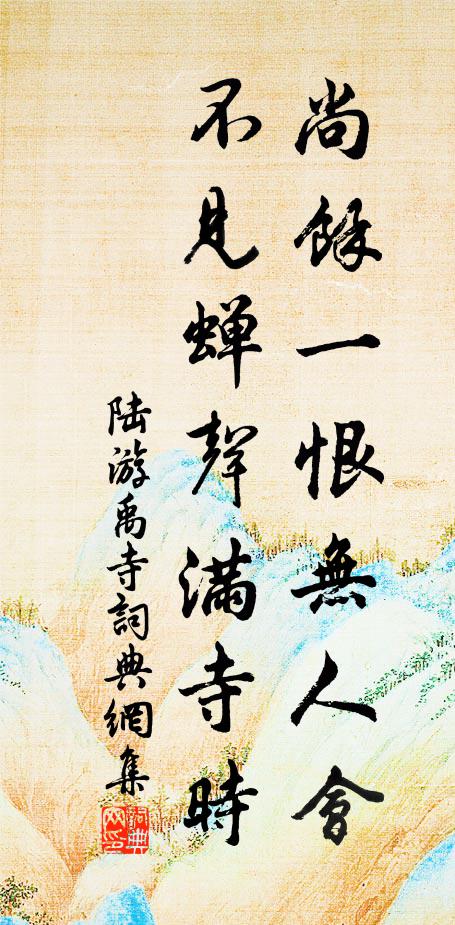 尚餘一恨無人會
不見蟬聲滿寺時
陸游禹寺詞典網集
詞典網印